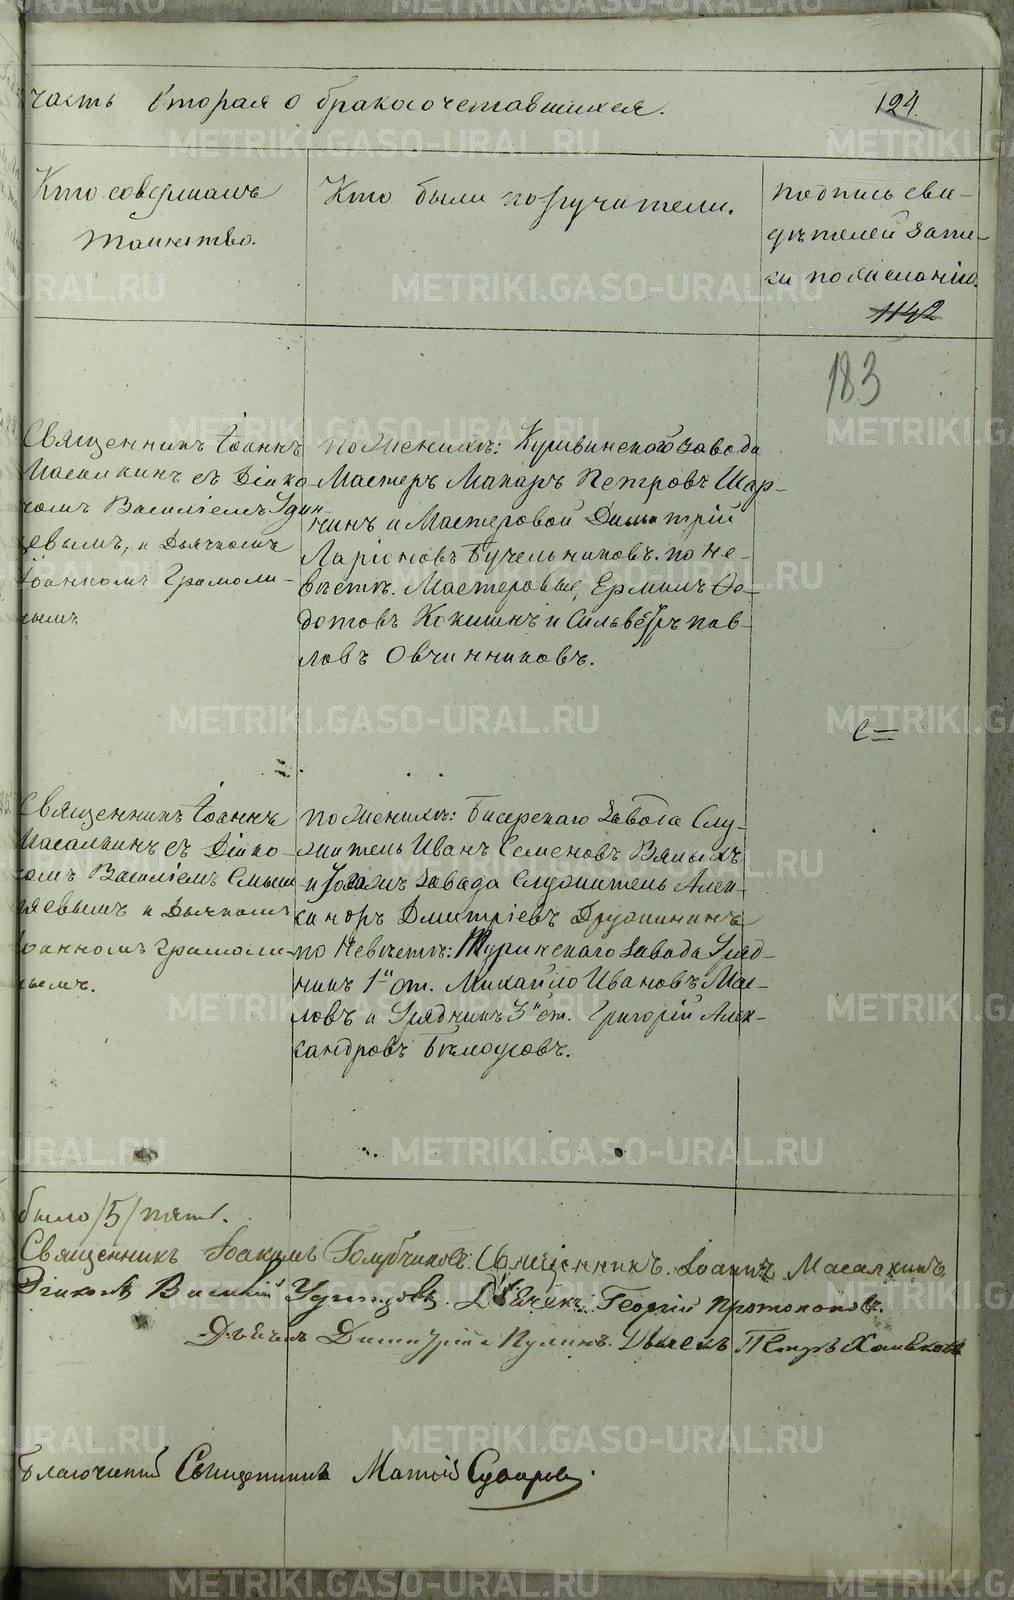 часть вторая о бракосочетавшихся.
124.
Кто совершалъ
таинство.
Кто были поручители.
Подпись сви-
дѣтелей запи-
си по желанію.
1142
183
Священникъ Іоаннъ
Масалкинъ съ Діако-
номъ Василіемъ Удин-
цевымъ, и Дьячкомъ
Іоанномъ Грамоли-
нымъ
по женихѣ: Кушвинскаго завода
Мастеръ Макаръ Петровъ Шар-
нинъ и Мастеровой Димитрій
Ларіоновъ Бучельниковъ. по не-
вѣстѣ. Мастеровые, Ермилъ Ѳе-
дотовъ Кокшинъ и Сильвестръ Пав-
ловъ Овчинниковъ.
С=
Священникъ Іоаннъ
Масалкинъ съ Діако-
номъ Василіемъ
и Дьячкомъ
Іоанномъ Грамоли-
нымъ.
по женихѣ: Бисерскаго завода Слу-
житель Иванъ Семеновъ Вяныхъ
и завода Служитель Алек-
саноръ Дмитріевъ Дружининъ
по Невѣстѣ: Туринскаго завода Уряд-
никъ 1й ст. Михайло Ивановъ Мас-
ловъ и Урядникъ 3й ст. Григорій Алек-
сандровъ Бѣлоусовъ.
было /5/ пять.
Священникъ Іоакимъ Голубчиковъ. Священникъ. Іоаннъ Масалкинъ
Діаконъ Василій Удинцовъ. Дьячекъ Георгій Протопоповъ.
Дьячекъ Димитрій Кулинъ. Дьячекъ Петръ Хамьковъ
Благочинный Священникъ Матѳій Суворовъ.
METRIKI.GASO-URAL.RU